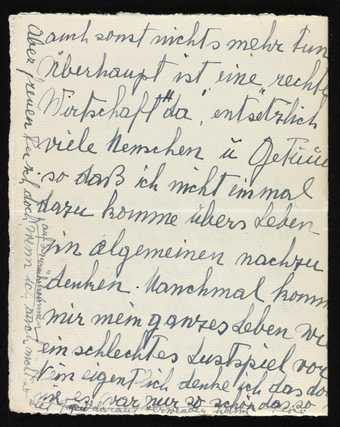 auch sonst nichts mehr tun
Überhaupt ist eine rechte
Wirtschaft "da", entsetzlich
viele Menschen u
so daß ich nicht einmal
dazu komme übers Leben
im algemeinen nachzu
denken. Manchmal komm
mir mein ganzes Leben wi
ein schlechtes Lustspiel vor
eigentlich denke ich das do
war nur so schön das so
Aber freuen